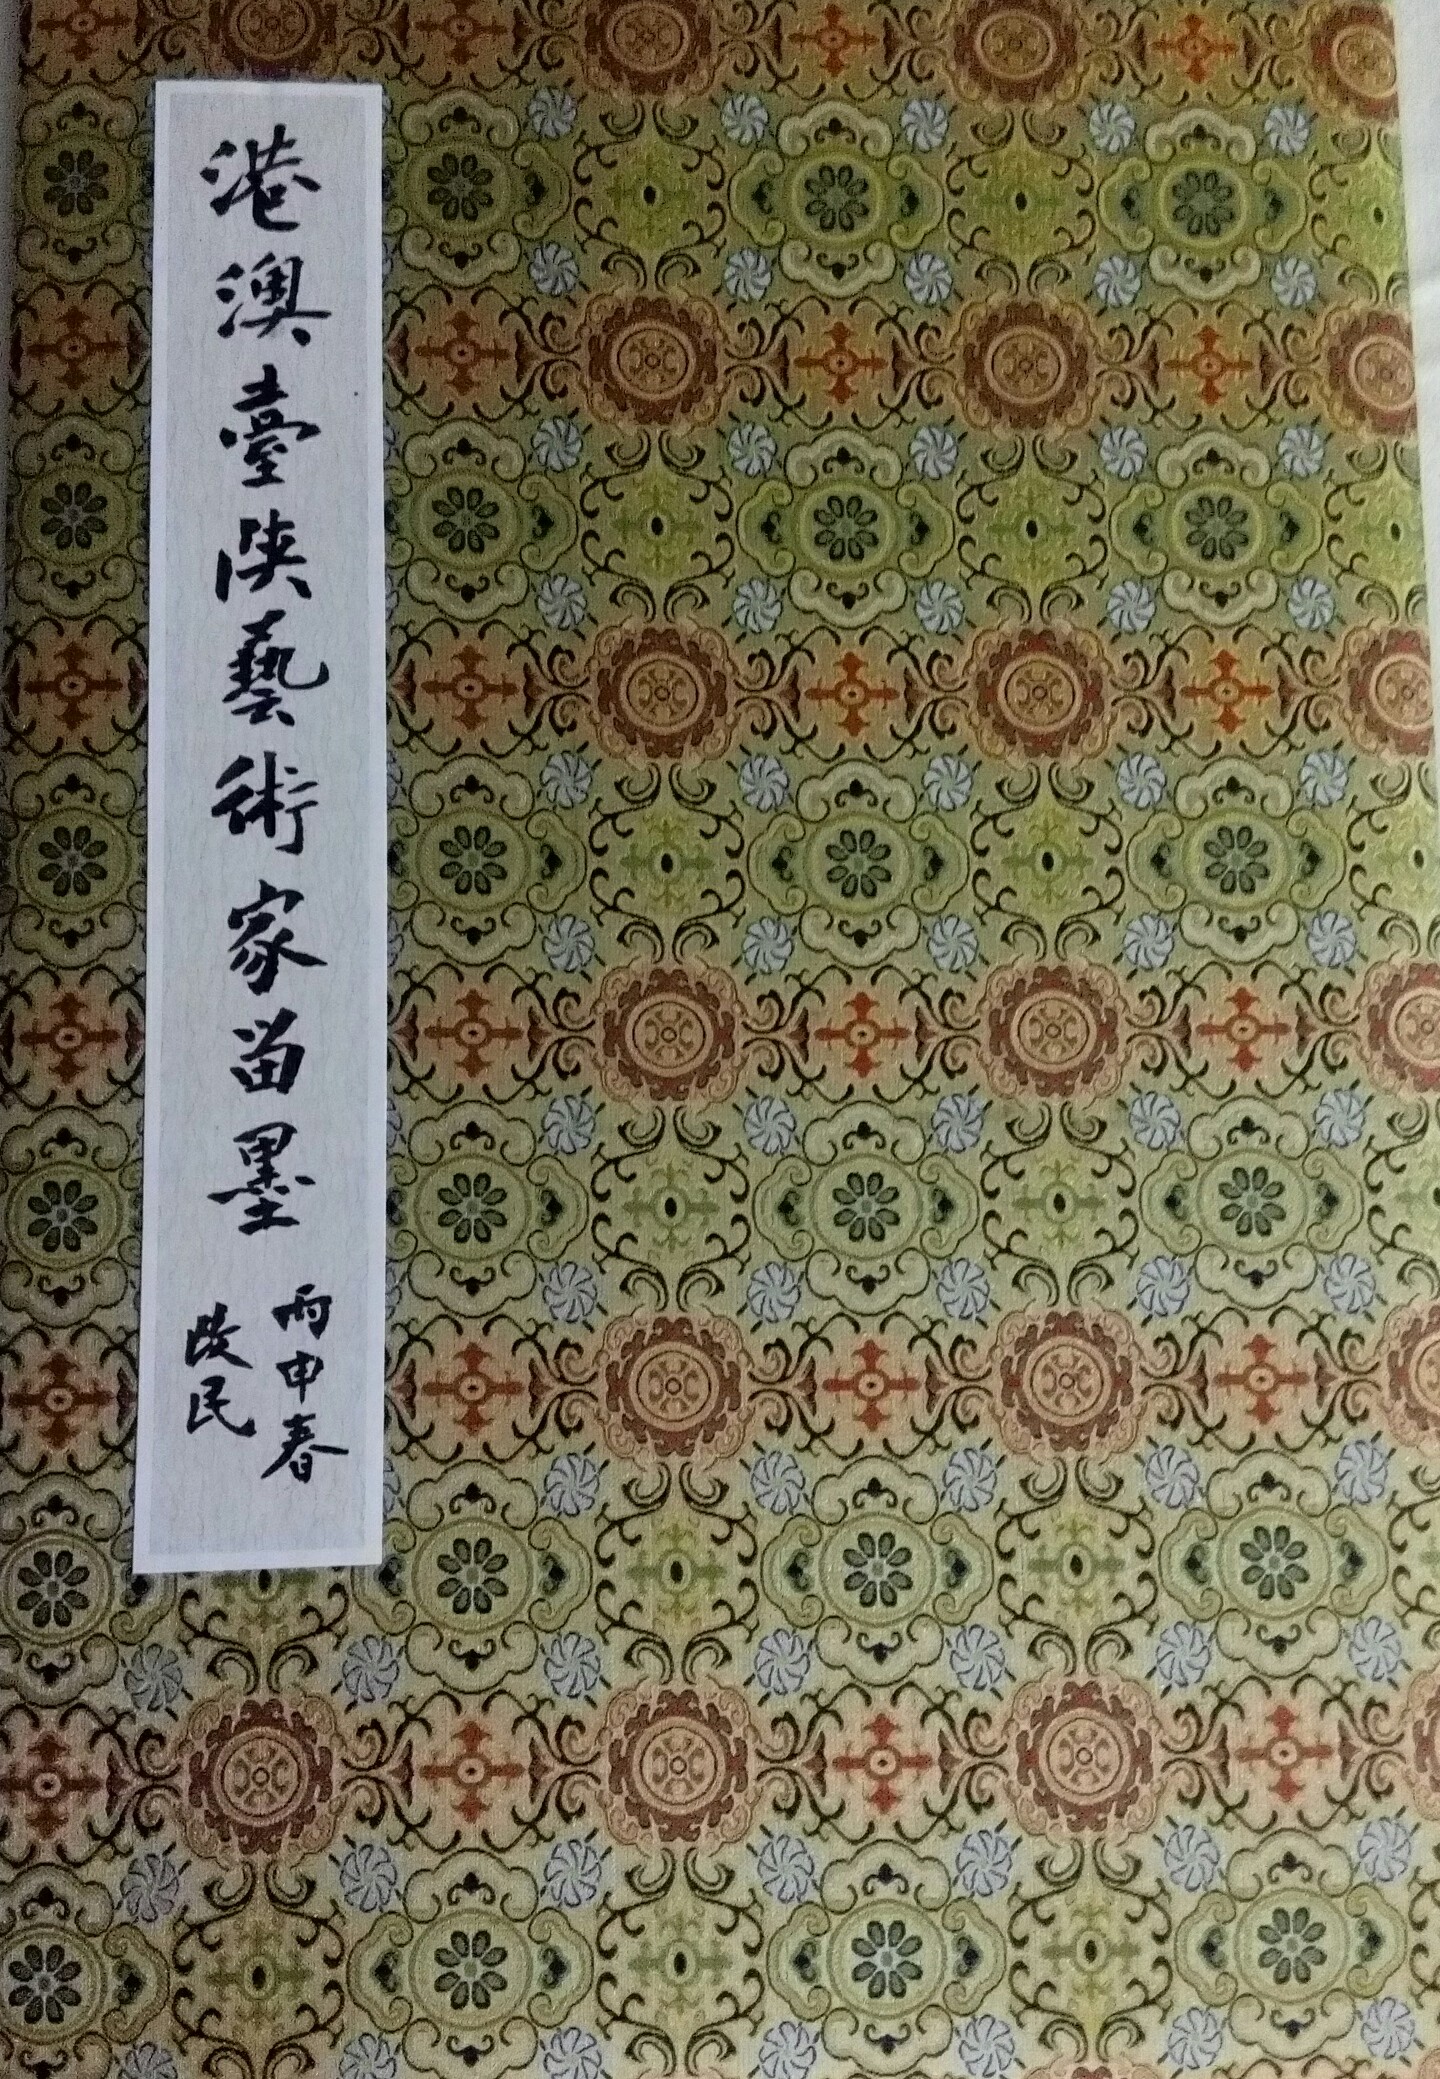 港澳臺陝藝術家留墨
丙申春
民